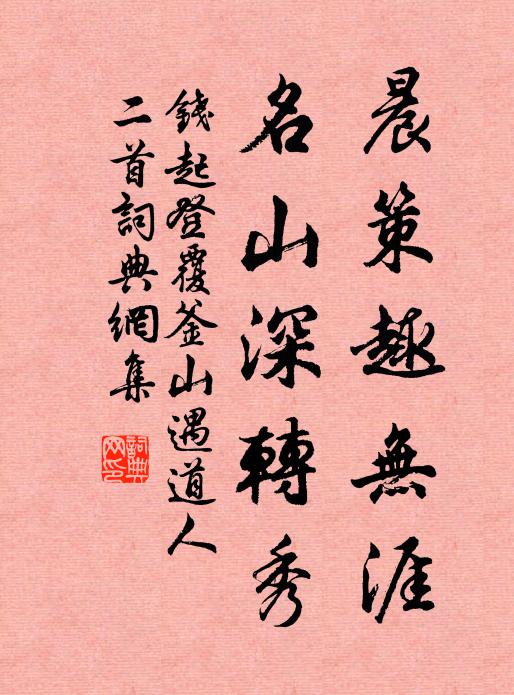 晨策趣無涯
名山深轉秀
錢起登覆釜山遇道人
二首詞典網集
詞典網印